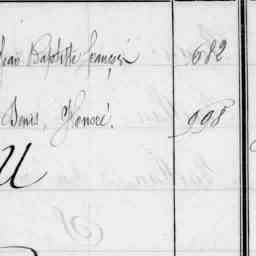 Jean Baptiste François 682
Denis, Honoré. 998
U